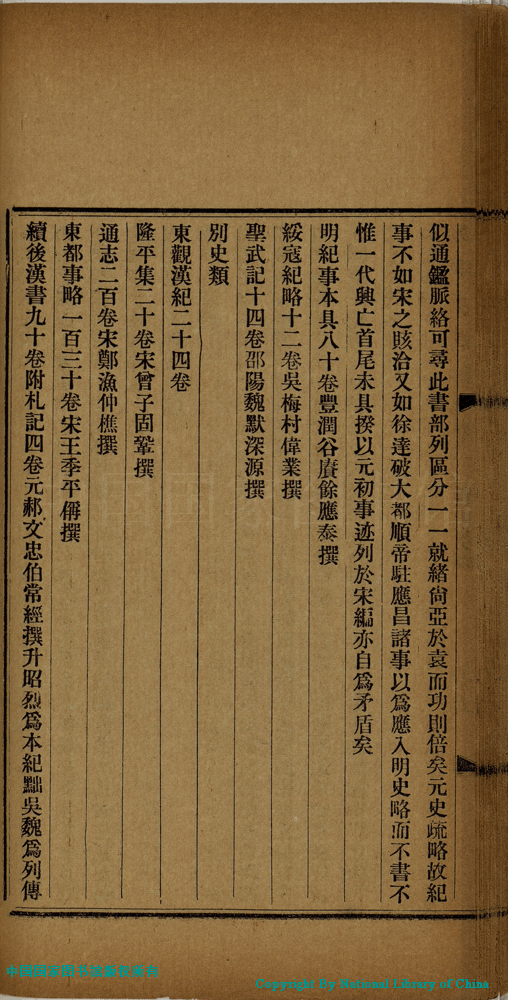 似通鑑脈絡可尋此書部列區分一一就緒尙亞於袁而功則倍矣元史疏略故紀
事不如宋之賅洽又如徐達破大都順帝駐應昌諸事以爲應入明史略而不書不
惟一代興亡首尾未具揆以元初事迹列於宋編亦自爲矛盾矣
明紀事本具八十卷豐潤谷賡餘應泰撰
綏寇紀略十二卷吳梅村偉業撰
聖武記十四卷邵陽魏默深源撰
別史類
東觀漢紀二十四卷
隆平集二十卷宋曾子固鞏撰
通志二百卷宋鄭漁仲樵撰
東都事略一百三十卷宋王季平偁撰
續後漢書九十卷附札記四卷元郝文忠伯常經撰升昭烈爲本紀黜吳魏爲列傳
Copyright By National Library of China